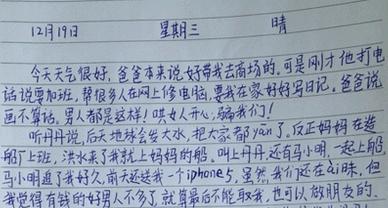 12月19日 星期三 晴
今天天气很好,爸爸本来说好带我去商场的。可是刚才他打电
话说要加班,帮很多人在网上修电脑,要我在家好好写日记。爸爸说
画不算话。男人都是这样!哄女人开心,骗我们!
听丹丹说,后天地球会发大水,把大家都yan了。反正妈妈在造
船厂上班,洪水来了我就上妈妈的船。叫上丹丹,还有马小明,一起上船
马小明追了我好久,前天还送我一个iphone5,虽然我们还在ai昧,但
我觉得有钱的好男人不多了,就算最后不能取我,也可以做朋友的